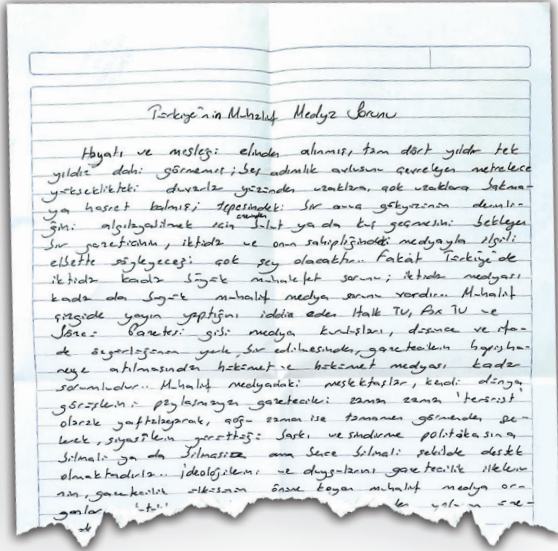 Türkiye'nin Muhalif Medya Sorunu
Hayatı ve mesleği elinden alınmış, tam dört yıldır tek
yıldız dahi görmemiş; beş adımlık avlusunu çevreleyen metrelerce
yükseklikteki duvarlar yüzünden uzaklara, çok uzaklara bakma-
ya hasret kalmış; tepesindeki bir avuç gökyüzünün derinli-
ğini algılayabilmek için üzerinden bulut ya da kuş geçmesini bekleyen
bir gazetecinin, iktidar ve onun sahipliğindeki medyayla ilgili
elbette söyleyeceği çok şey olacaktır.. Fakat Türkiye'de
iktidar kadar büyük muhalefet sorunu; iktidar medyası
kadar da büyük muhalif medya sorunu vardır.. Muhalif
çizgide yayın yaptığını iddia eden Halk TV, Fox TV ve
Sözcü Gazetesi gibi medya kuruluşları, düşünce ve ifa-
de özgürlüğünün yerle bir edilmesinden, gazetecilerin hapisha-
neye atılmasından hükümet ve hükümet medyası kadar
sorumludur.. Muhalif medyadaki meslektaşlar, kendi dünya
görüşlerini paylaşmayan gazetecileri zaman zaman 'terörist'
olarak yaftalayarak, çoğu zaman ise tamamen görmezden ge-
lerek, siyasilerin yürüttüğü baskı ve sindirme politikasına,
bilmeli ya da bilmeksizin ama bence bilmeli şekilde destek
olmaktadırlar.. ideolojilerini ve duygularını gazetecilik ilkeleri-
nin, gazetecilik etkisinin önüne koyan muhalif medya or-
ganları